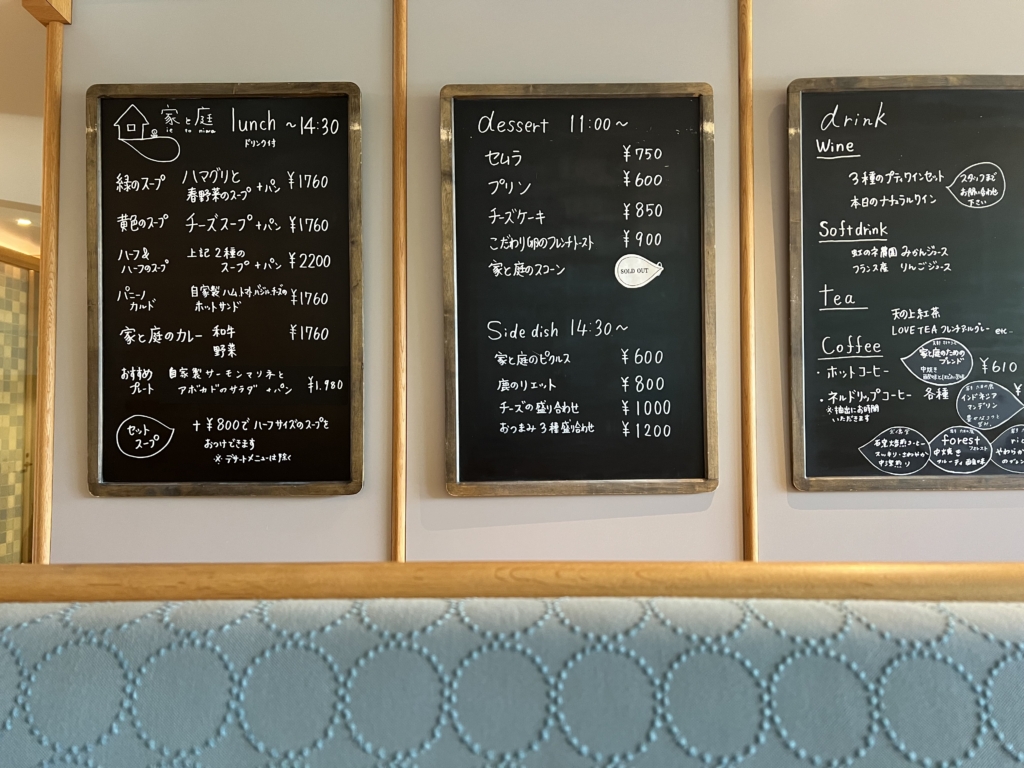 家と庭 lunch ～14:30
ie to niwa
ドリンク付
緑のスープ ハマグリと
春野菜のスープ +パン ¥1760
黄色のスープ チーズスープ+パン ¥1760
ハーフ& 上記2種の
ハーフのスープ スープ+パン ¥2200
パニーノ 自家製ハムトマトバジルチーズの
カルド ホットサンド ¥1760
家と庭のカレー 和牛 ¥1760
野菜
おすすめ 自家製サーモンマリネと
プレート アボカドのサラダ +パン ¥1.980
セット
スープ
+¥800で ハーフサイズのスープを
おつけできます
※デザートメニューは除く
dessert 11:00～
セムラ ¥750
プリン ¥600
チーズケーキ ¥850
こだわり卵のフレンチトースト ¥900
家と庭のスコーン SOLD OUT
Side dish 14:30～
家と庭のピクルス ¥600
鹿のリエット ¥800
チーズの盛り合わせ ¥1000
おつまみ3種盛り合わせ ¥1200
drink
Wine
3種のプティワインセット
本日のナチュラルワイン
スタッフまで
お問い合わせ
下さい
Softdrink
虹の木農園 みかんジュース
フランス産 りんごジュース
tea
天の上紅茶
LOVE TEA フレンチアールグレー etc
Coffee
・ホットコーヒー
家と庭のための
ブレンド
中炊き
¥610
・ネルドリップコーヒー 各種 ¥
※抽出にお時間
いただきます
インドネシア
マンデリン
石窯焙煎コーヒー
スッキリ・さわやか
中深煎り
forest
フォレスト
中炊き
フルーティ
やわらか